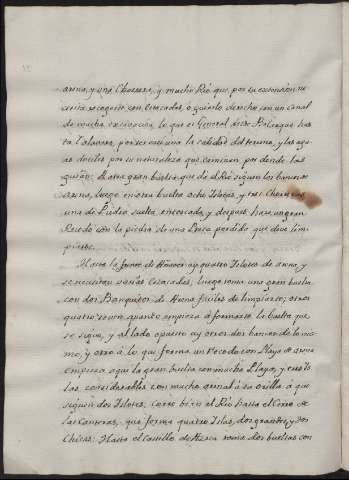 arena, y una Chorrera, y mucho Rio que, por su extension ne
cesita recogerse con estacadas, o quinto derecho con un canal
de mucha excavacion, lo que es General desde Bolraque has
ta Talavera, por ser como la calidad del terreno, y las agu
as dociles por su naturaleza que caminan por donde las
guian: de otra gran buelta que dá el Rio siguen los bancos
arena, luego en otra buelta ocho Islotes, y tres Chorreras
una de Piedra suelta, enroscada, y despues hace un gran
Recodo con la piedra de una Presa perdida que debe lim
piarse.
Hasta la Junta de ay quatro Islotes de arena, y
se necesitan varias Estacadas; luego toma una gran buelta
con dos Banquitos de Arena faciles de limpiarse; otros
quatro en un apunto empieza á formarse la buelta que
se sigue, y al lado opuesto ay otros dos bancos de lo mis
mo, y otro á lo que forma un Recodo con Playa de arena
empieza aqui la gran buelta con mucha Playa, y es de
las considerables con mucho arenal á su orilla, á que
siguen dos Islotes; corre bien el Rio hasta el Cerro de
las Canteras, que forma quatro Islas, dos grandes, y dos
Chicas: Hasta el Castillo de Azeca toma dos bueltas con